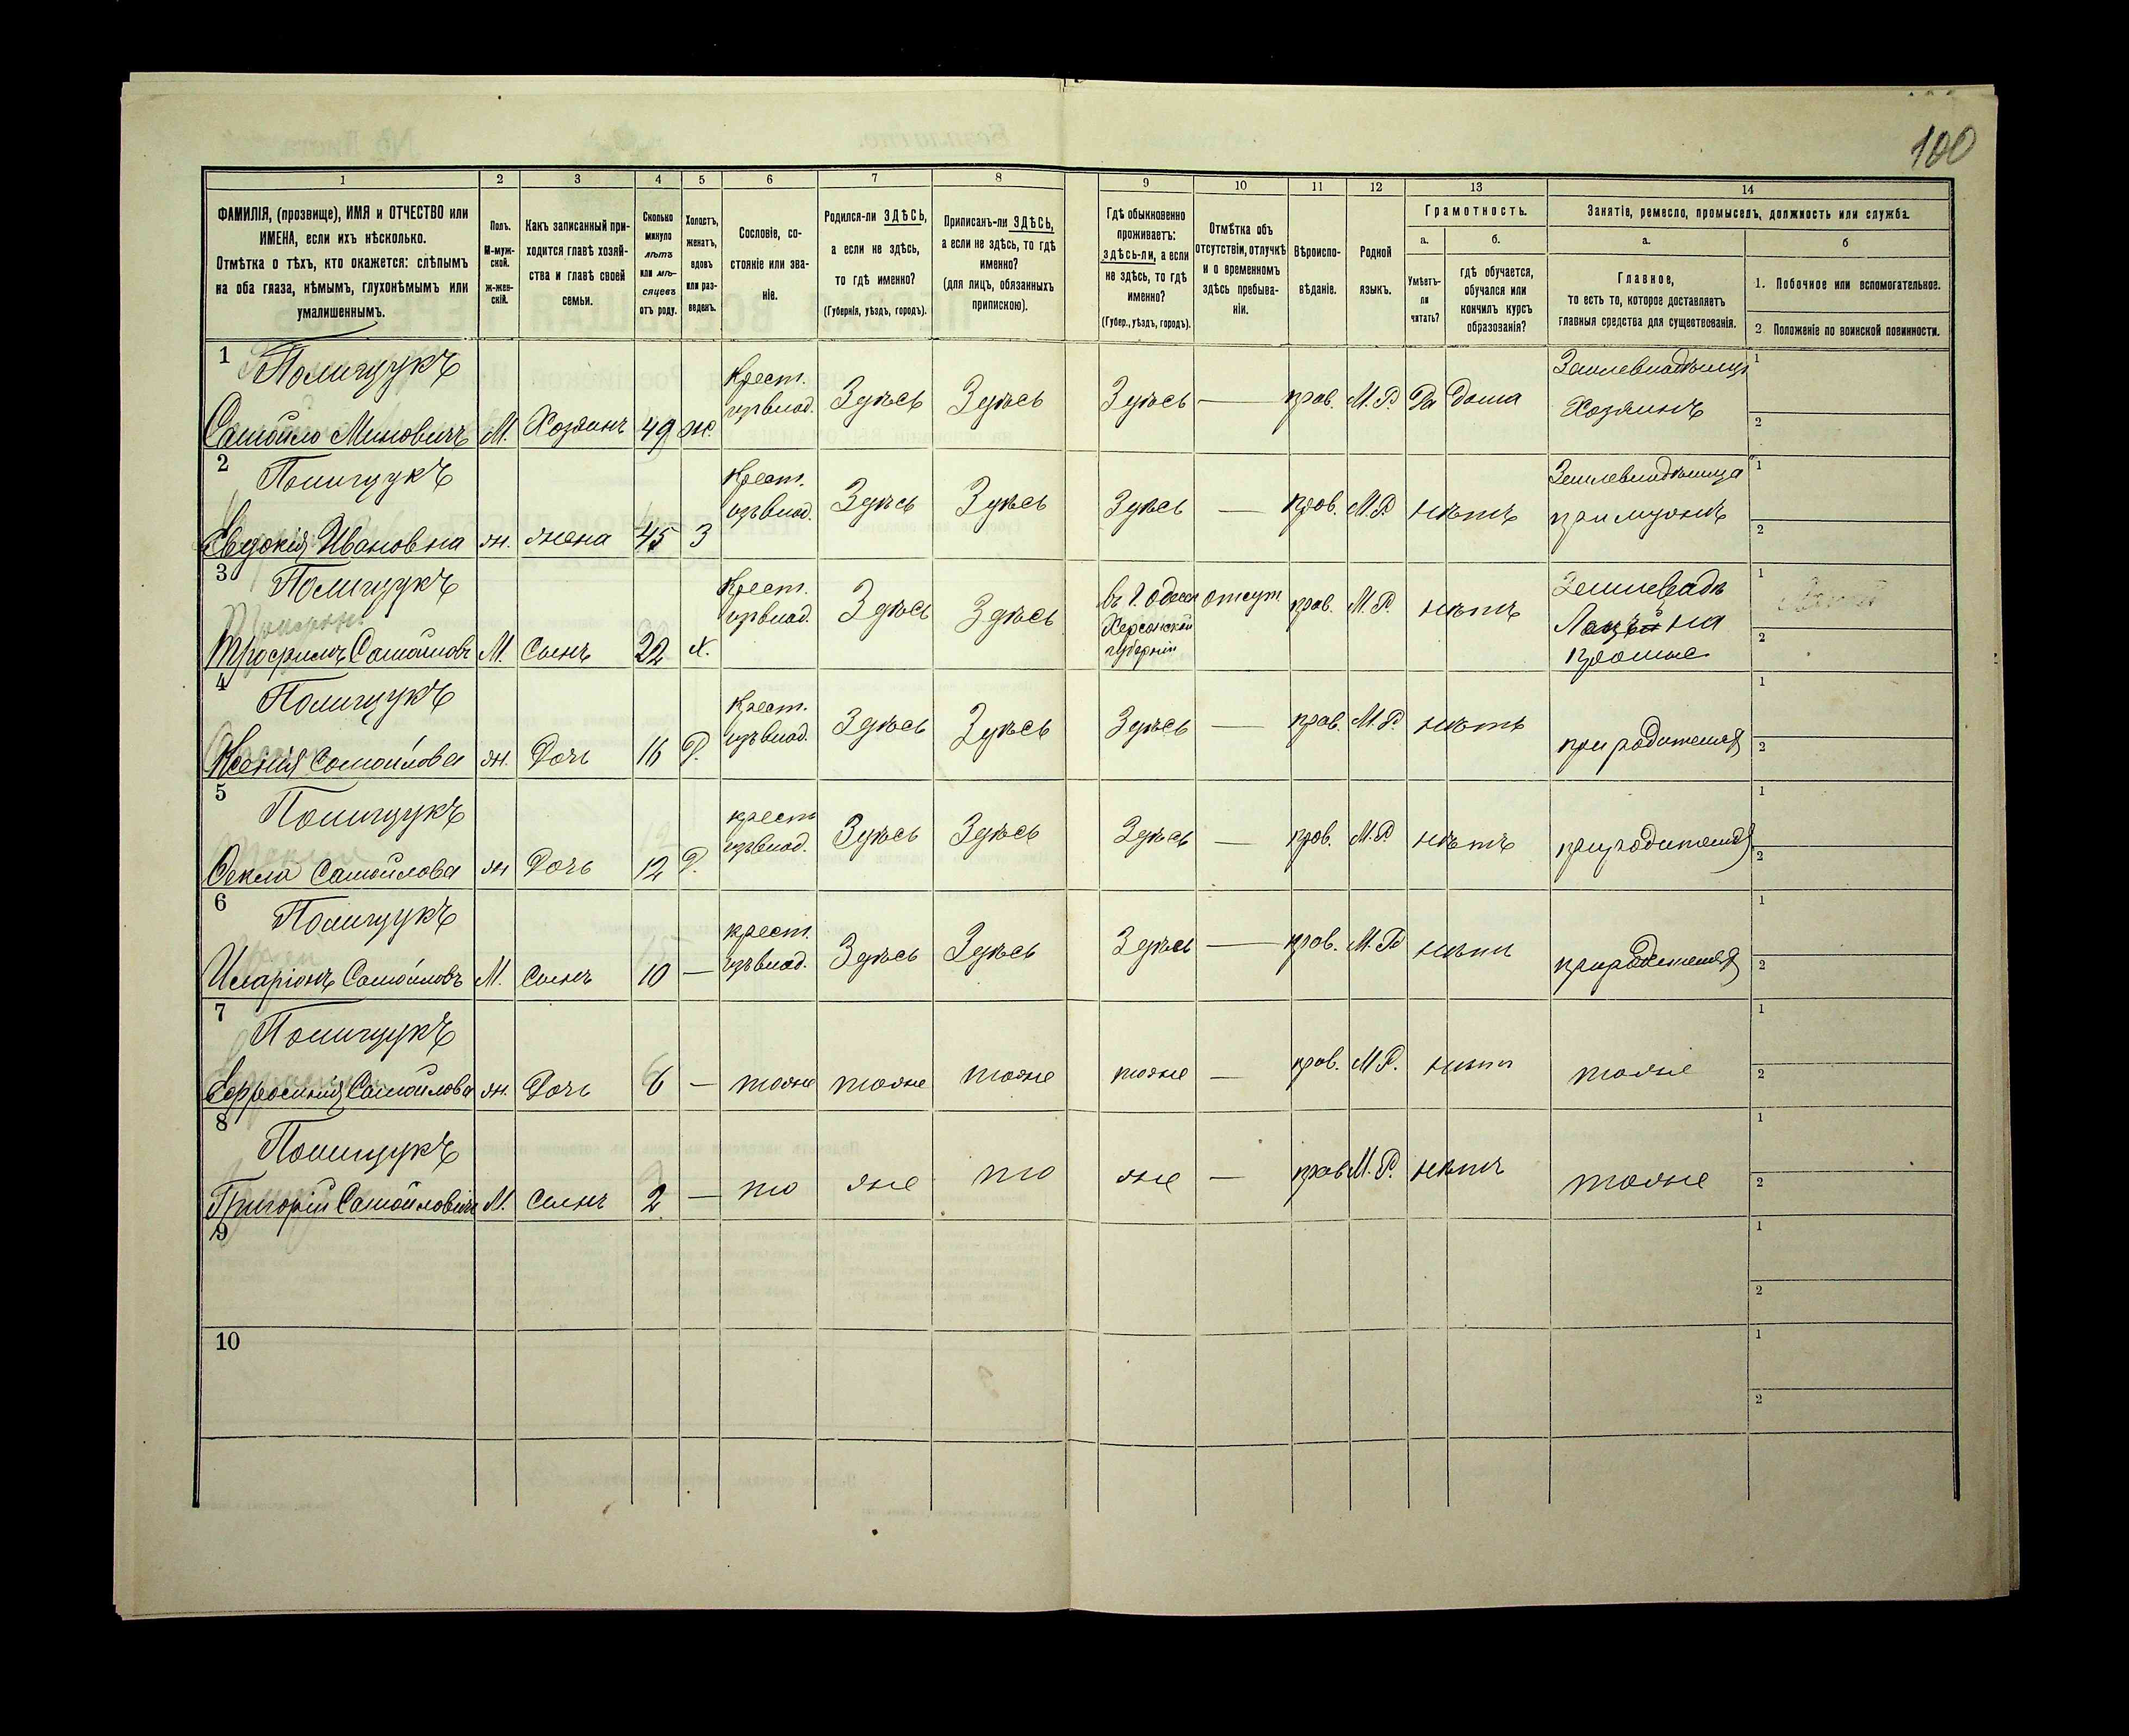 100
1 2 3 4 5 6 7 8 9 10 11 12 13 14
ФАМИЛІЯ, (прозвище), ИМЯ и ОТЧЕСТВО или
ИМЕНА, если ихъ нѣсколько.
Отмѣтка о тѣхъ, кто окажется: слѣпымъ
на оба глаза, нѣмымъ, глухонѣмымъ или
умалишеннымъ.
Полъ.
М-муж-
ской.
ж-жен-
скій.
Какъ записанный при-
ходится главѣ хозяй-
ства и главѣ своей
семьи.
Сколько
минуло
лѣтъ
или мѣ-
сяцевъ
отъ роду.
Холостъ,
женатъ,
вдовъ
или раз-
веденъ.
Сословіе, со-
стояніе или зва-
ніе.
Родился-ли ЗДѢСЬ,
а если не здѣсь,
то гдѣ именно?
(Губернія, уѣздъ, городъ).
Приписанъ-ли ЗДѢСЬ,
а если не здѣсь, то гдѣ
именно?
(для лицъ, обязанныхъ
припискою).
Гдѣ обыкновенно
проживаетъ:
здѣсь-ли, а если
не здѣсь, то гдѣ
именно?
(Губер., уѣздъ, городъ).
Отмѣтка объ
отсутствіи, отлучкѣ
и о временномъ
здѣсь пребыва-
ніи.
Вѣроиспо-
вѣданіе.
Родной
языкъ.
Грамотность.
а.
Умѣетъ-
ли
читать?
б.
гдѣ обучается,
обучался или
кончилъ курсъ
образованія?
Занятіе, ремесло, промыселъ, должность или служба.
а.
Главное,
то есть то, которое доставляетъ
главныя средства для существованія.
б
1. Побочное или вспомогательное.
2. Положеніе по воинской повинности.
1 Полищукъ
Самойло Миновичъ М. Хозяинъ 49 ж. Крест. изъ влад. Здѣсь Здѣсь Здѣсь — прав. М. Р. Да дома
Хозяинъ
1
2
2 Полищукъ
Евдокія Ивановна ж. жена 45 З Крест. изъ влад. Здѣсь Здѣсь Здѣсь — прав. М. Р. нѣтъ Землевладѣлица
при мужѣ
1
2
3 Полищукъ
Трофимъ Самойловъ М. Сынъ 22 х. Крест. изъ влад. Здѣсь Здѣсь
въ г. Одессѣ
Херсонской
губерніи
отсут. прав. М. Р. нѣтъ
1
2
4 Полищукъ
Ксенія Самойлова ж. Дочь 16 Д. Крест. изъ влад. Здѣсь Здѣсь Здѣсь — прав. М. Р. нѣтъ при родителяхъ
1
2
5 Полищукъ
Фекла Самойлова ж Дочь 12 Д. крест изъ влад. Здѣсь Здѣсь Здѣсь — прав. М. Р нѣтъ при родителяхъ
1
2
6 Полищукъ
Иларіонъ Самойловъ М. Сынъ 10 — крест. изъ влад. Здѣсь Здѣсь Здѣсь — прав. М. Р нѣтъ при родителяхъ
1
2
7 Полищукъ
Ефросинія Самойлова ж. Дочь 6 — тоже тоже тоже тоже — прав. М Р. нѣтъ тоже
1
2
8 Полищукъ
Григорій Самойловичъ М. Сынъ 2 — то же то же — прав М. Р. нѣтъ тоже
1
2
9
1
2
10
1
2